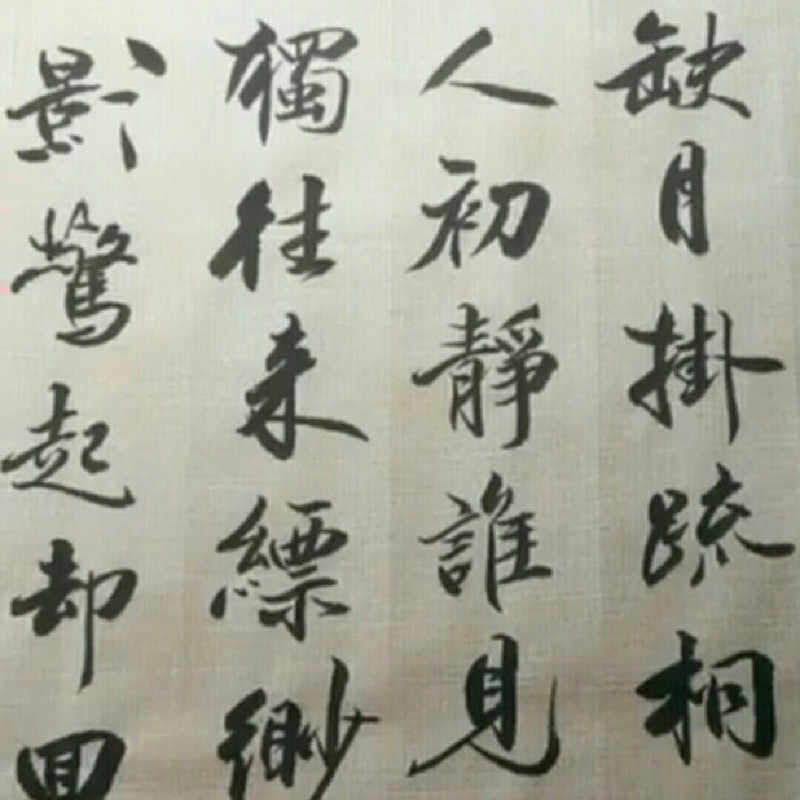 缺月掛疏桐
人初靜誰見
獨往来縹緲
影驚起却回